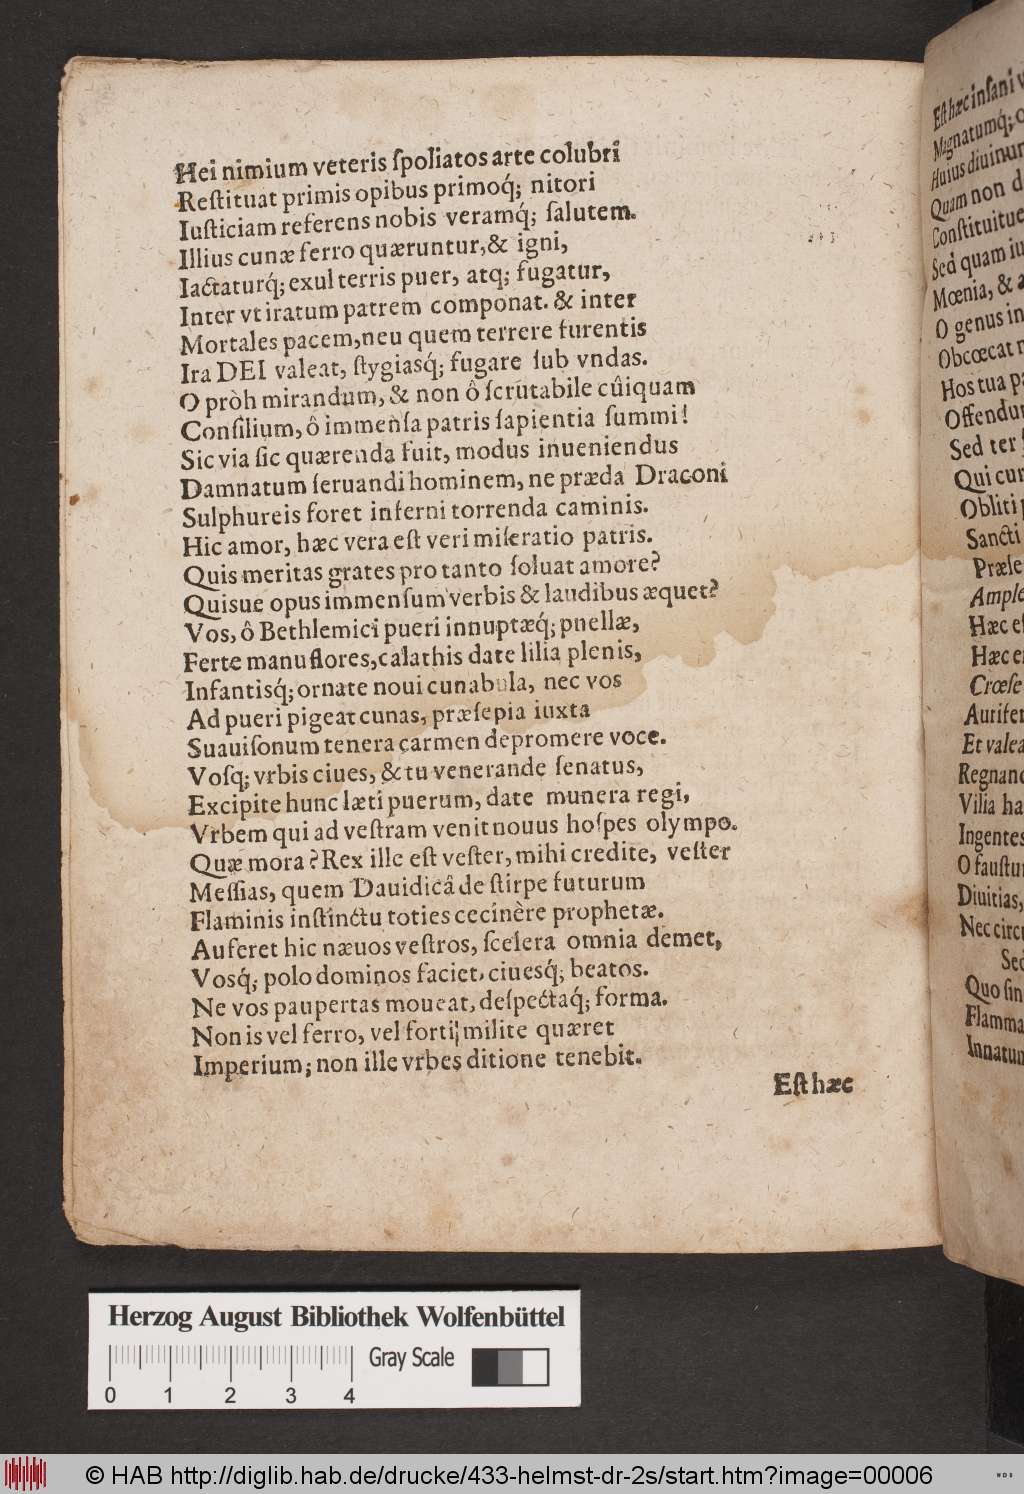 Hei nimium veteris ſpoliatos arte colubri
Reſtituat primis opibus primoq́; nitori
Iuſticiam referens nobis veramq́; ſalutem.
Illius cunæ ferro quæruntur,& igni,
Iactaturq́; exul terris puer, atq; fugatur,
Inter vt iratum patrem componat. & inter
Mortales pacem,neu quem terrere furentis
Ira DEI valeat, ſtygiasq́; fugare ſub vndas.
O pròh mirandum, & non ô ſcrutabile cûiquam
Conſilium, ô immenſa patris ſapientia ſummi!
Sic via ſic quærenda fuit, modus inueniendus
Damnatum ſeruandi hominem, ne præda Draconi
Sulphureis foret inferni torrenda caminis.
Hic amor, hæc vera eſt veri miſeratio patris.
Quis meritas grates pro tanto ſoluat amore?
Quisue opus immenſum verbis & laudibus æquet?
Vos, ô Bethlemici pueri innuptæq́; puellæ,
Ferte manu flores,calathis date lilia plenis,
Infantisq́; ornate noui cunabula, nec vos
Ad pueri pigeat cunas, præſepia iuxta
Suauiſonum tenera carmen depromere voce.
Voſq; vrbis ciues, & tu venerande ſenatus,
Excipite hunc læti puerum, date munera regi,
Vrbem qui ad veſtram venit nouus hoſpes olympo.
Quæ mora? Rex ille eſt veſter, mihi credite, veſter
Meſſias, quem Dauidicâ de ſtirpe futurum
Flaminis inſtinctu toties cecinère prophetæ.
Auferet hic næuos veſtros, ſcelera omnia demet,
Vosq́; polo dominos faciet, ciuesq́; beatos.
Ne vos paupertas moueat, deſpectaq́; forma.
Non is vel ferro, vel forti milite quæret
Imperium; non ille vrbes ditione tenebit.
Eſt hæc
Eſt hæc inſani
Magnatumq́;
Huius diuinum
Quam non
Conſtitui
Sed quam
Mœnia, &
O genus in
Obcœcat
Hos tua
Offendu
Sed ter
Qui cur
Obliti
Sancti
Præſe
Ample
Hæc eſ
Hæc e
Crœſe
Aurifer
Et valea
Regnand
Vilia ha
Ingentes
O fauſtu
Diuitias,
Nec circu
Sed
Quo ſin
Flamma
Innatum
Herzog August Bibliothek Wolfenbüttel
Gray Scale
0 1 2 3 4
© HAB http://diglib.hab.de/drucke/433-helmst-dr-2s/start.htm?image=00006